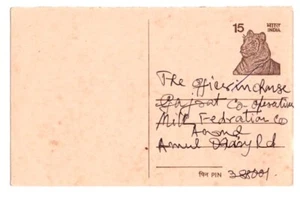 15 भारत
INDIA
The Officer incharge
Gajrat Co-operative
Milk Fedration Co
Anand
Amul Dairy Rd
पिन PIN 388001